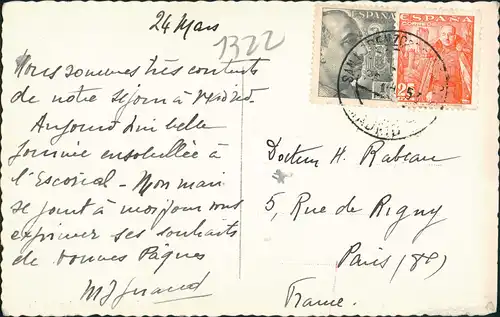 24 Mars
1322
Nous sommes très contents
de notre séjour à Madrid.
Aujourd'hui belle
journée ensoleillée à
l'Escorial - Mon mari
se joint à moi pour vous
exprimer ses souhaits
de bonnes Pâques
ESPAÑA
ESPAÑA
CORREOS
SAN LORENZO
MADRID
Docteur H. Rabeau
5, Rue de Rigny
Paris (8e)
France.